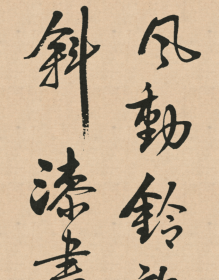 風動鈴
斜漆書